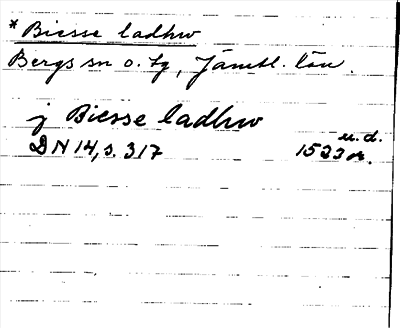 * Biesse ladhw
Bergs sn o. tg, Jämtl. län.
j Biesse ladhw
u.d.
DN 14, s. 317 1533 or.